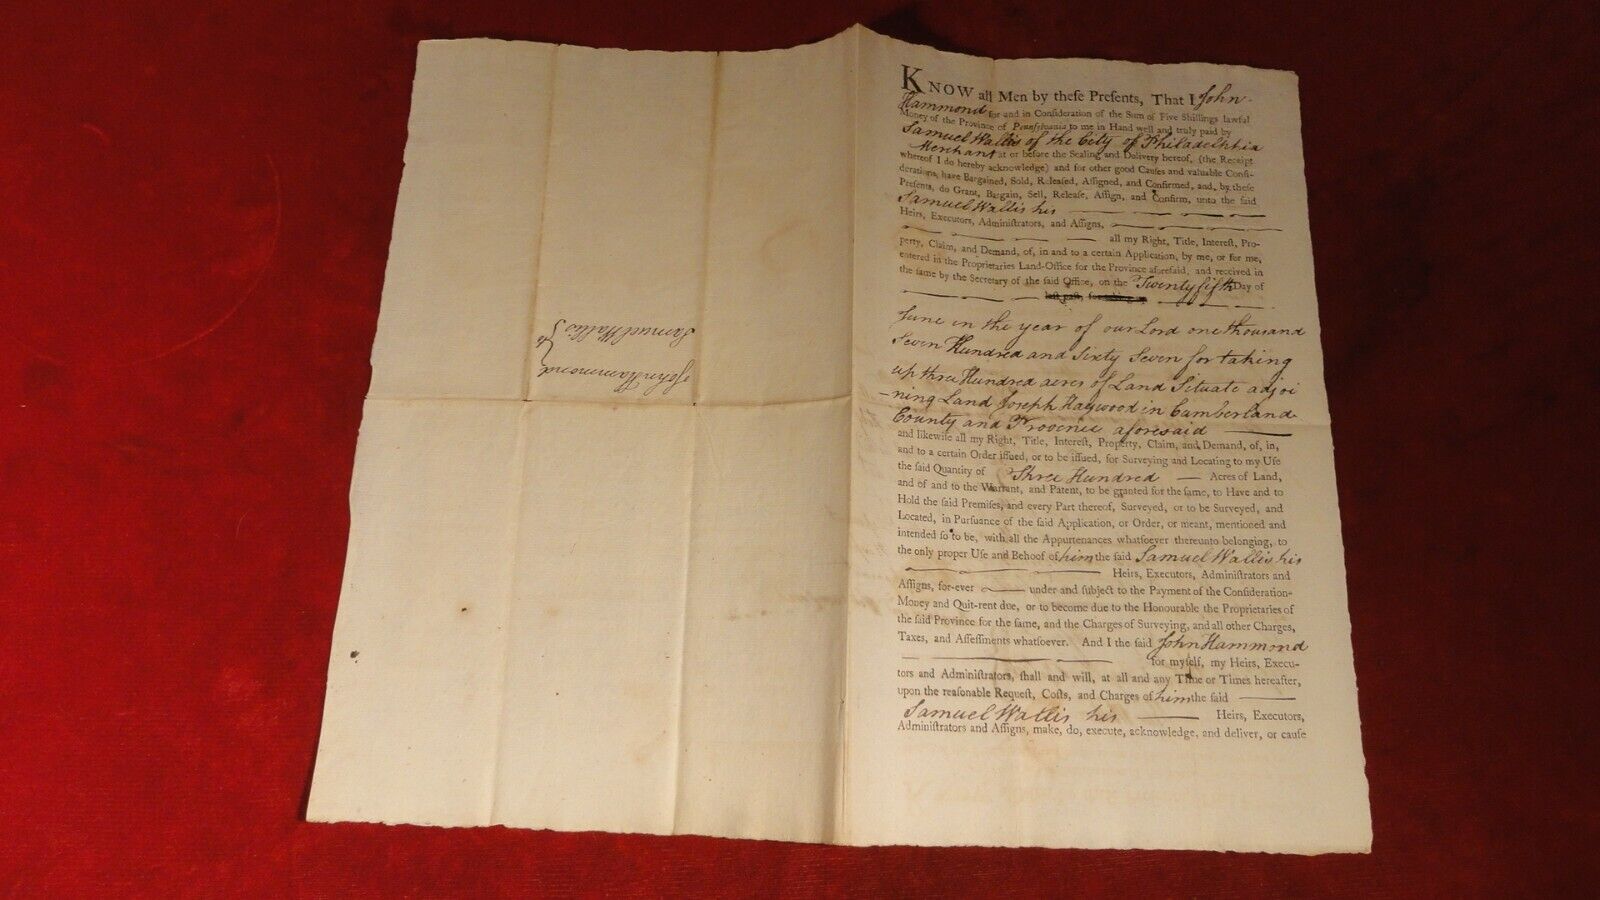 John Hammond
to
Samuel Wallis
KNOW all Men by theſe Preſents, That I John
Hammond for and in Conſideration of the Sum of Five Shillings lawful
Money of the Province of Pennſylvania to me in Hand well and truly paid by
Samuel Wallis of the City of Philadelphia
Merchant at or before the Sealing and Delivery hereof, (the Receipt
whereof I do hereby acknowledge) and for other good Cauſes and valuable Conſi-
derations, have Bargained, Sold, Releaſed, Aſſigned, and Confirmed, and, by theſe
Preſents, do Grant, Bargain, Sell, Releaſe, Aſſign, and Confirm, unto the ſaid
Samuel Wallis his
Heirs, Executors, Adminiſtrators, and Aſſigns,
all my Right, Title, Intereſt, Pro-
perty, Claim, and Demand, of, in and to a certain Application, by me, or for me,
entered in the Proprietaries Land-Office for the Province aforeſaid, and received in
the ſame by the Secretary of the ſaid Office, on the Twenty fifth Day of
laſt paſt, for
June in the year of our Lord one thousand
Seven Hundred and Sixty Seven for taking
up three Hundred acres of Land Situate adjoi
-ning Land Joseph Haywood in Cumberland
County and Provence aforesaid
and likewiſe all my Right, Title, Intereſt, Property, Claim, and Demand, of, in,
and to a certain Order iſſued, or to be iſſued, for Surveying and Locating to my Uſe
the ſaid Quantity of Three Hundred Acres of Land,
and of and to the Warrant, and Patent, to be granted for the ſame, to Have and to
Hold the ſaid Premiſes, and every Part thereof, Surveyed, or to be Surveyed, and
Located, in Purſuance of the ſaid Application, or Order, or meant, mentioned and
intended ſo to be, with all the Appurtenances whatſoever thereunto belonging, to
the only proper Uſe and Behoof of him the ſaid Samuel Wallis his
Heirs, Executors, Adminiſtrators and
Aſſigns, for-ever under and ſubject to the Payment of the Conſideration-
Money and Quit-rent due, or to become due to the Honourable the Proprietaries of
the ſaid Province for the ſame, and the Charges of Surveying, and all other Charges,
Taxes, and Aſſeſſments whatſoever. And I the ſaid John Hammond
for myſelf, my Heirs, Execu-
tors and Adminiſtrators, ſhall and will, at all and any Time or Times hereafter,
upon the reaſonable Requeſt, Coſts, and Charges of him the ſaid
Samuel Wallis his Heirs, Executors,
Adminiſtrators and Aſſigns, make, do, execute, acknowledge, and deliver, or cauſe